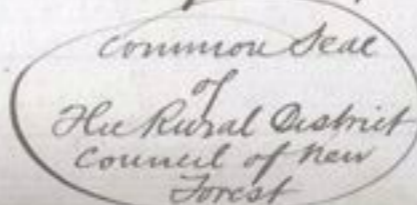 Common Seal
of
The Rural District
Council of New
Forest